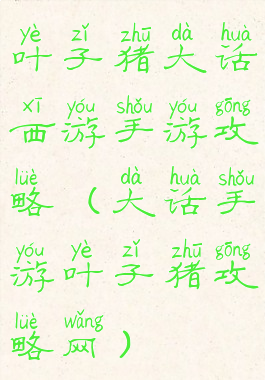 yè zǐ zhū dà huà
叶子猪大话
xī yóu shǒu yóu gōng
西游手游攻
lüè dà huà shǒu
略（大话手
yóu yè zǐ zhū gōng
游叶子猪攻
lüè wǎng
略网）